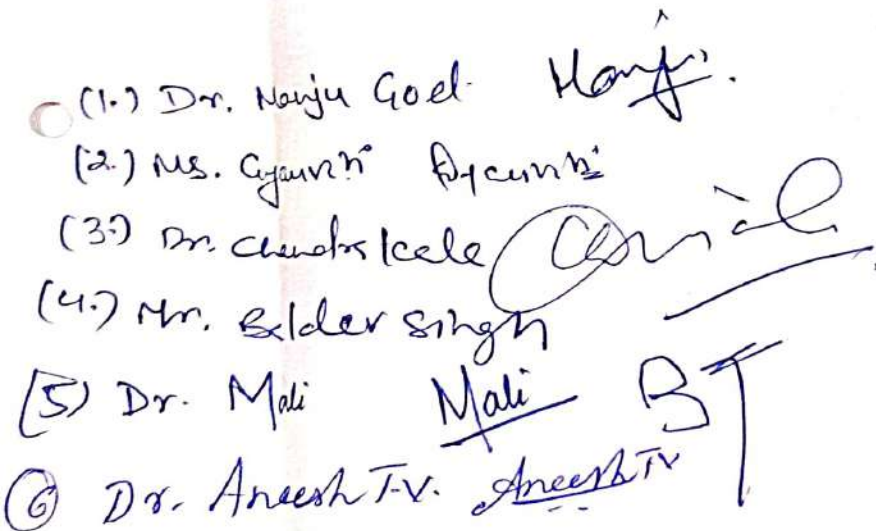 (1.) Dr. Manju Goel Manju
(2.) Ms. Gyanvri
(3.) Dr. Chandrs kala
(4.) Mr. Baldev Singh
(5) Dr. Mali Mali BT
(6) Dr. Aneesh T.V. Aneesh TV